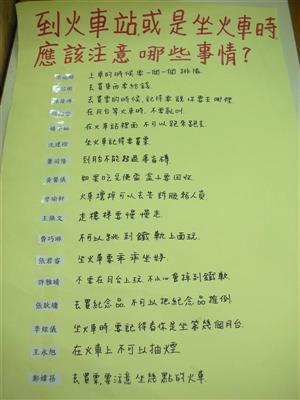 到火車站或是坐火車時
應該注意哪些事情?
上車的時候要一個一個排隊
去買東西要給錢
去買票的時候,記得要說你要去哪裡
在月台等火車時,不要亂叫
在火車站裡面不可以跑來跑去
坐火車記得要買票
到月台不能超過黃
黃馨儀 如果吃完便當盒要回收
火車壞掉可以去告訴服務人員
王振文 走樓梯要慢慢走
費巧琳 不可以跳到鐵軌上面玩
張君睿 坐火車要乖乖坐好
許雅晴 不要在月台上玩,不小心會掉到鐵軌
張耿墉 去買紀念品不可以把紀念品推倒
李炫儀 坐火車時,要記得看你是坐第幾個月台
王永旭 在火車上不可以抽煙
鄭緯蓓 去買票要注意坐幾點的火車